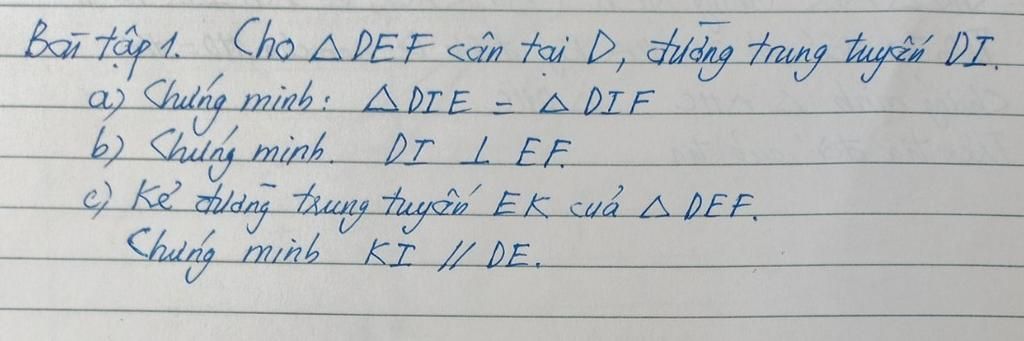 Bài tập 1. Cho △DEF cân tại D, đường trung tuyến DI.
a) Chứng minh: △DIE = △DIF
b) Chứng minh. DI ⊥ EF.
c) Kẻ đường trung tuyến EK của △DEF.
Chứng minh KI // DE.